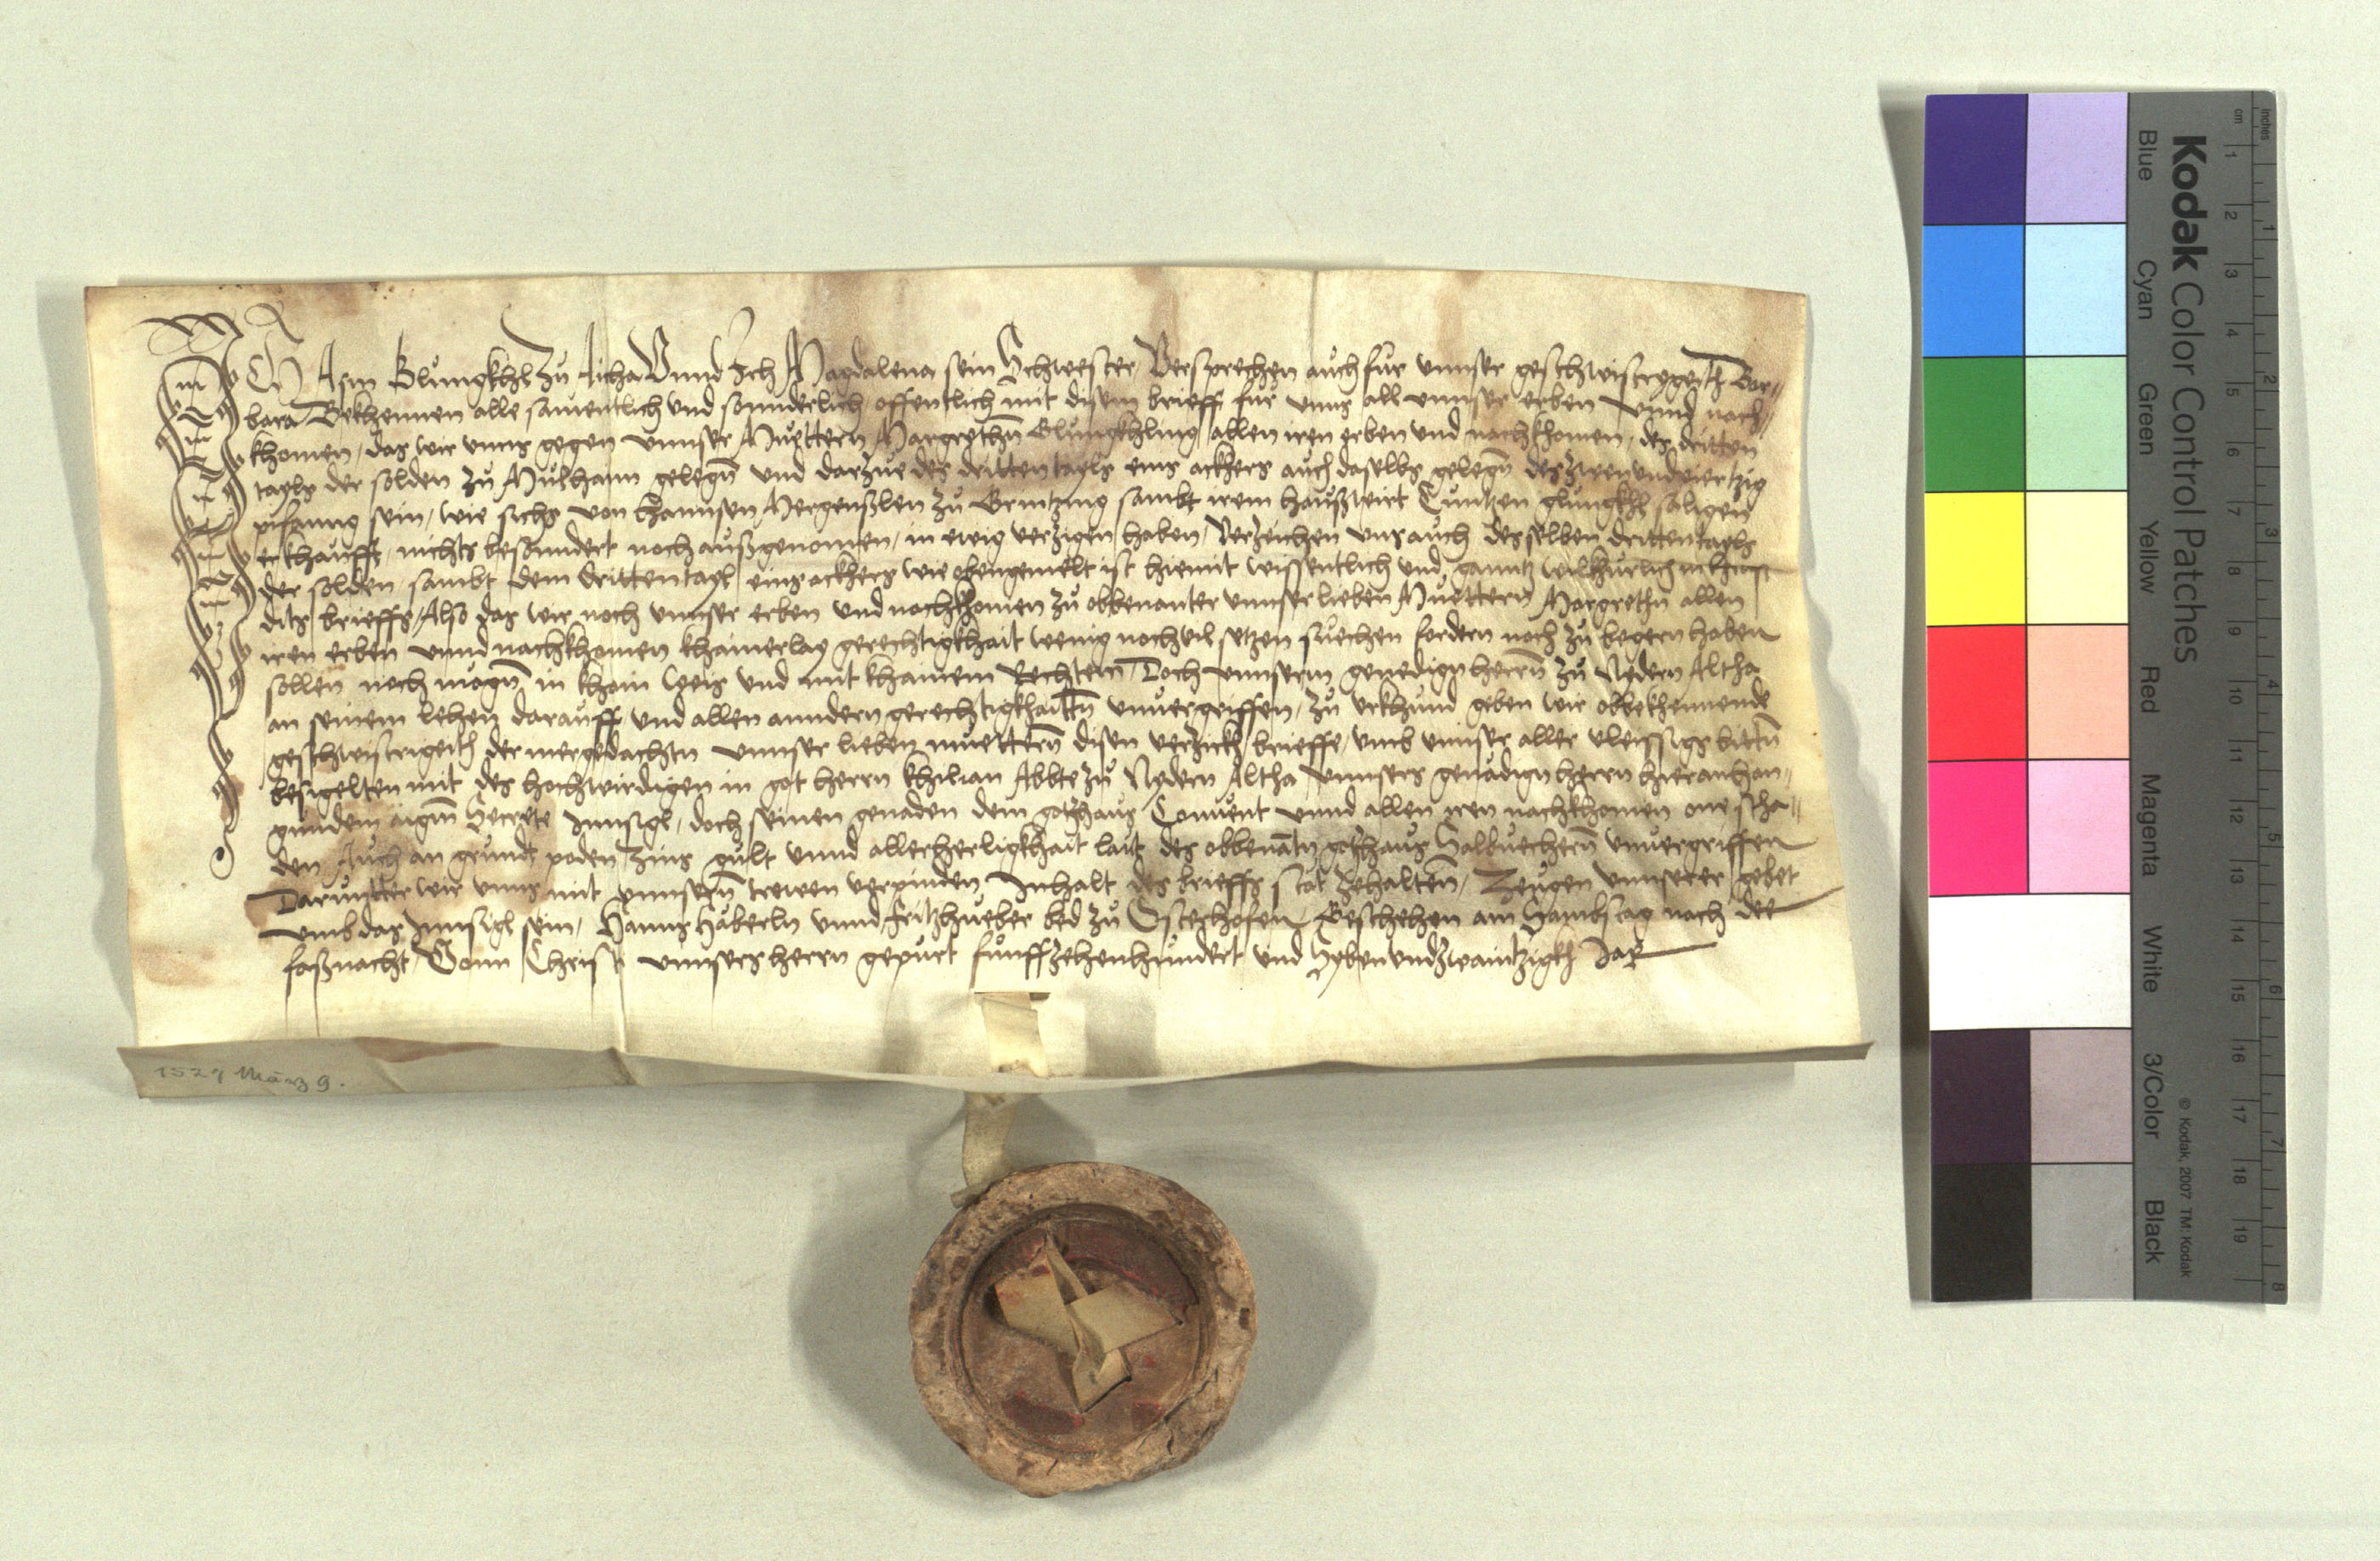 Ich Asm Glungkhl zu Aicha Unnd Ich Magdalena sein Schwester Versprechen auch fur unnser geschwistrygeith Bar-
bara Bekhennen alle samentlich und sonnderlich offentlich mit disem brieff fur unns all unnser erben unnd nach-
khomen, das wir unns gegen unnser Muettern Margrethn Glungkhling allen iren erben und nachkhomen, des dritten
tayls der solden zu Mulhaim gelegn und darzue des dritten tayls eins ackhers auch daselbs gelegn des zwenundviertzig
pifanng sein, wie sichs von Hannsen zu sambt irem haußwirt Cuntzen glungkhl saligen
erkhaufft, nichts besunndert noch außgenomen, in ewig verzigen haben, Verzeichen uns auch desselben dritten tayls
der solden sambt dem dritten tayl eins ackhers wie obengemelt ist hiemit wissentlich und ganntz wilkhurlich in krafft
dits brieffs, Also das wir noch unnser erben und nachkhomen zu obbenanter unnser lieben Muettern Margrethn allen
iren erben unnd nachkhomen khainerlay gerechtigkhait wenig noch vil setzen suechen fordern noch zu begern haben
sollen noch mogn in khain weis und mit khainem Rechten, Doch unnserm genedign herrn zu Nidern Altha
an seinem lehen darauff und allen anndern gerechtigkhaittn unvergriffen, Zu urkhund geben wir obbekhennende
geschwistrigeith der mergedachtn unnser lieben muettern disen verzickh brieffe, umb unnser aller vleissigs bittn
besigelten mit des hochwirdigen in got herrn Khilian Abbte zu Nydern Altha unnsers genadign herrn hieranhan-
gundem aignn Secrete Innsigl, doch seinen genaden dem gotzhaus Convent unnd allen iren nachkhomen one scha-
den Auch an grundt poden Zins gult unnd allerherligkhait laut des obbenantn gotzhaus Salbuechern unvergriffen
Darunter wir unns mit unnsern trewen verpinden Inhalt des brieffs stat zehalten, Zeugen unnserer gebet
umb das Innsigl sein, Hanns Häberln unnd Fritz Hueber bed zu Osterhofen, Geschehen am Sambstag nach der
faßnacht, Vonn Christi unnsers herrn gepurt funffzehenhundert und Syben undzwaintzigkh Jar
1527 März 9.
Kodak Color Control Patches
Blue Cyan Green Yellow Red Magenta White 3/Color Black
© Kodak, 2007 TM: Kodak
inches 1 2 3 4 5 6 7 8
cm 1 2 3 4 5 6 7 8 9 10 11 12 13 14 15 16 17 18 19